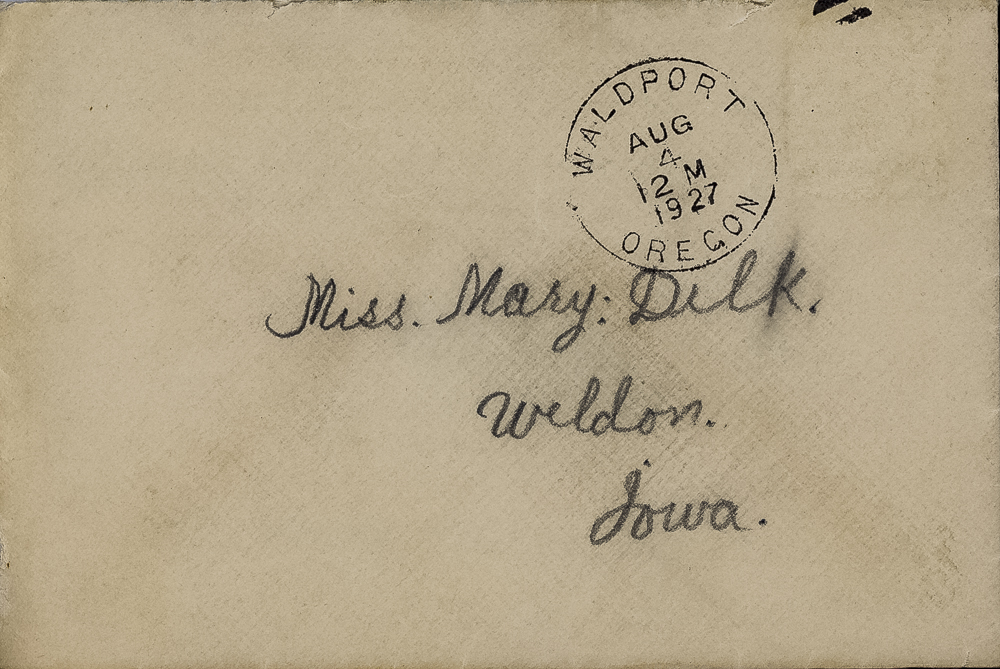 WALDPORT
AUG
4
12 M
1927
OREGON
Miss. Mary: Dilk.
Weldon.
Iowa.